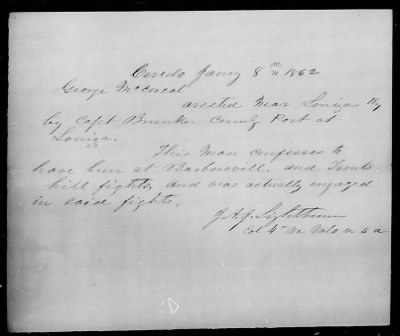 Ceredo Jany 8th 1862
George McCorcal
arested Near Louiza Ky
by Capt Brunker Comdg Post at
Louiza.
This Man confesses to
have bun at Barborsvill. and
hill fights, and was actually engaged
in said fights.
J.A.J. Lightburn
Col 4th Va Vols U S A